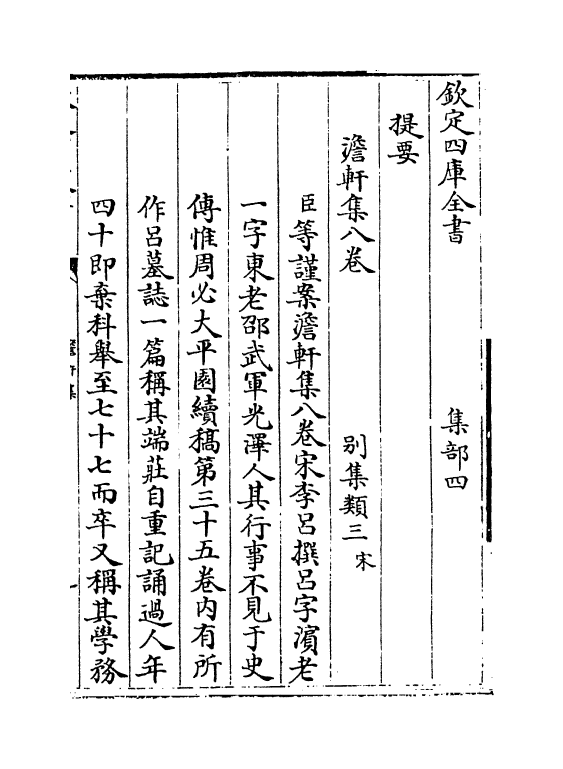 欽定四庫全書　集部四
提要
澹軒集八卷　別集類三 宋
臣等謹案澹軒集八卷宋李呂撰呂字濱老
一字東老邵武軍光澤人其行事不見于史
傳惟周必大平園續稿第三十五卷内有所
作呂墓誌一篇稱其端莊自重記誦過人年
四十即棄科舉至七十七而卒又稱其學務